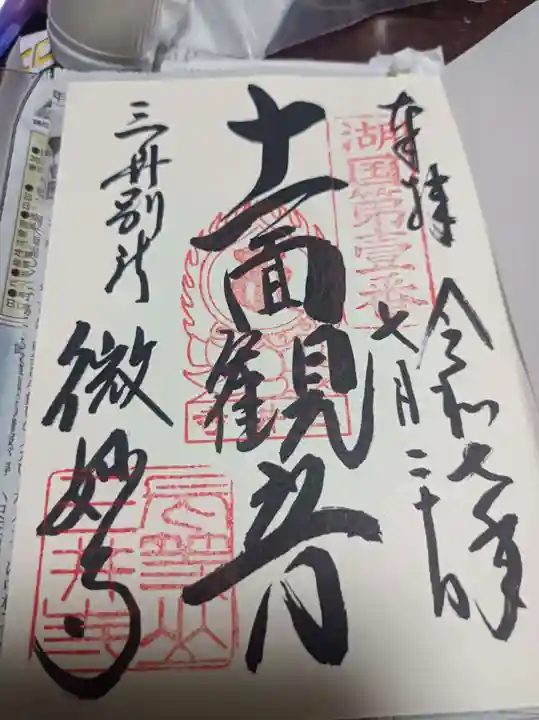 奉拝
令和七年
七月二十日
湖国第壹番
十一面観音
三井別所
微妙寺
三井寺